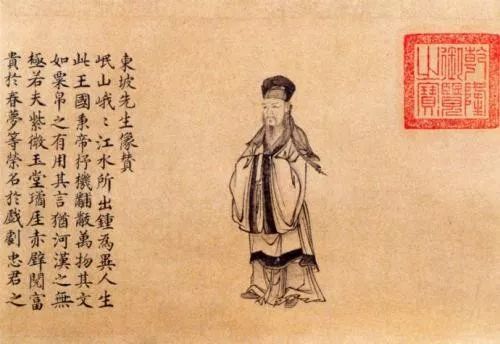 乾隆
御覽
之寶
東坡先生像贊
岷山峨〻江水所出鍾為異人生
此王國秉帝抒機黼黻萬物其文
如粟帛之有用其言猶河漢之無
極若夫紫微玉堂璚厓赤壁閱富
貴於春夢等榮名於戲劇忠君之